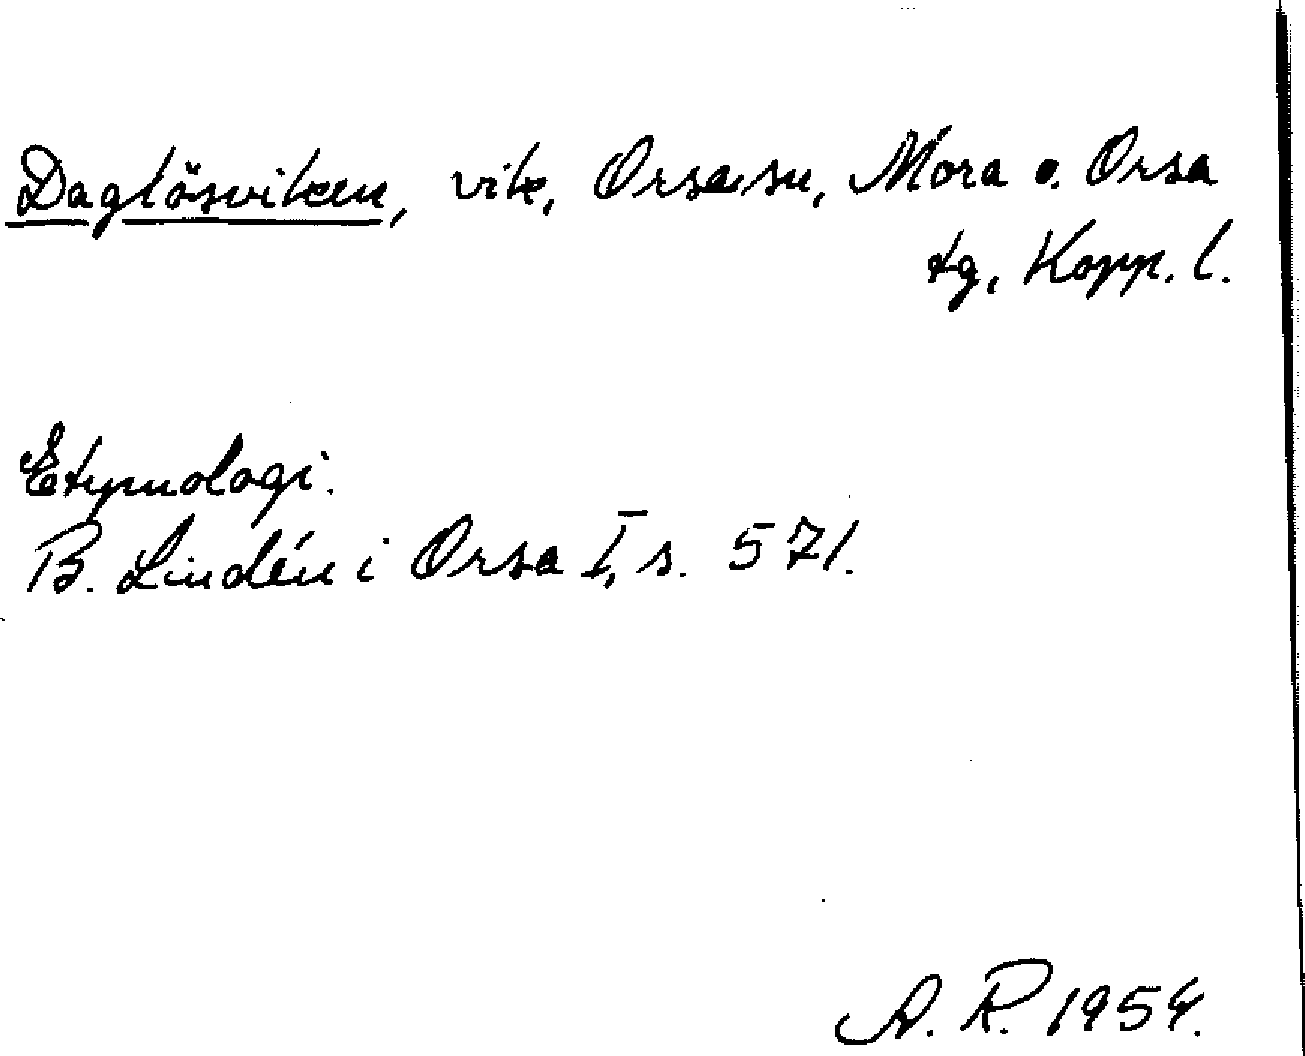 Daglösviken, vik, Orsasjn, Mora o. Orsa
tg, Kopp. l.
Etymologi.
B. Lindén i Orsa I, s. 571.
A. R. 1954.